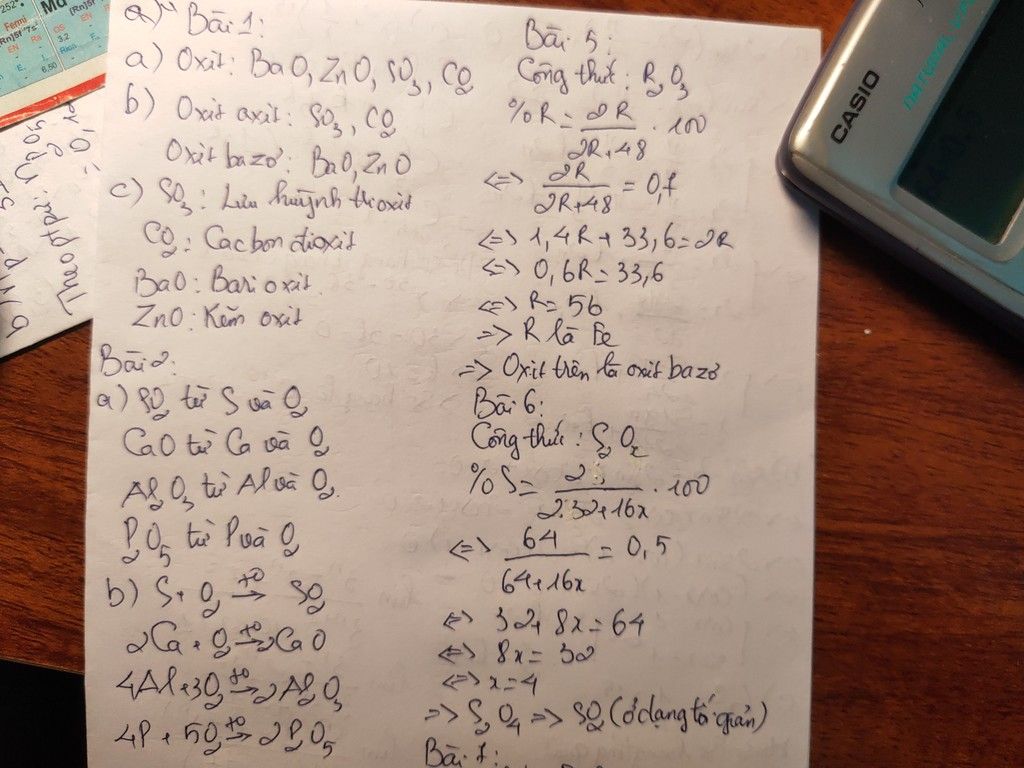 a)
Bài 1:
a) Oxit: BaO, ZnO, SO₃, CO₂
b) Oxit axit: SO₃, CO₂
Oxit bazơ: BaO, ZnO
c) SO₃: Lưu huỳnh trioxit
CO₂: Cacbon đioxit
BaO: Bari oxit
ZnO: Kẽm oxit
Bài 2:
a) SO₂ từ S và O₂
CaO từ Ca và O₂
Al₂O₃ từ Al và O₂.
P₂O₅ từ P và O₂
b) S + O₂ →(t0) SO₂
2Ca + O₂ →(t0) 2CaO
4Al + 3O₂ →(t0) 2Al₂O₃
4P + 5O₂ →(t0) 2P₂O₅
Bài 5:
Công thức: R₂O₃
%R = 2R / 2R+48 . 100
<=> 2R / 2R+48 = 0,7
<=> 1,4R + 33,6 = 2R
<=> 0,6R = 33,6
<=> R = 56
=> R là Fe
=> Oxit trên là oxit bazơ
Bài 6:
Công thức: S₂Oₓ
%S = 2S / 2.32+16x . 100
<=> 64 / 64+16x = 0,5
<=> 32 + 8x = 64
<=> 8x = 32
<=> x = 4
=> S₂O₄ => SO₂ (ở dạng tối giản)
Bài 7:
CASIO
Fermi